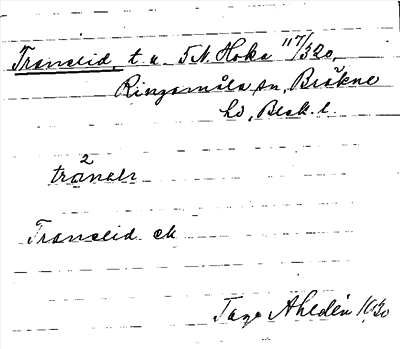 Traneeid, t. u. 5 N. Hoka 117/320,
Ringamåla sn, Bräkne
hd, Blek. l.
2
Traneeid ek
Tage Ahldén 1930